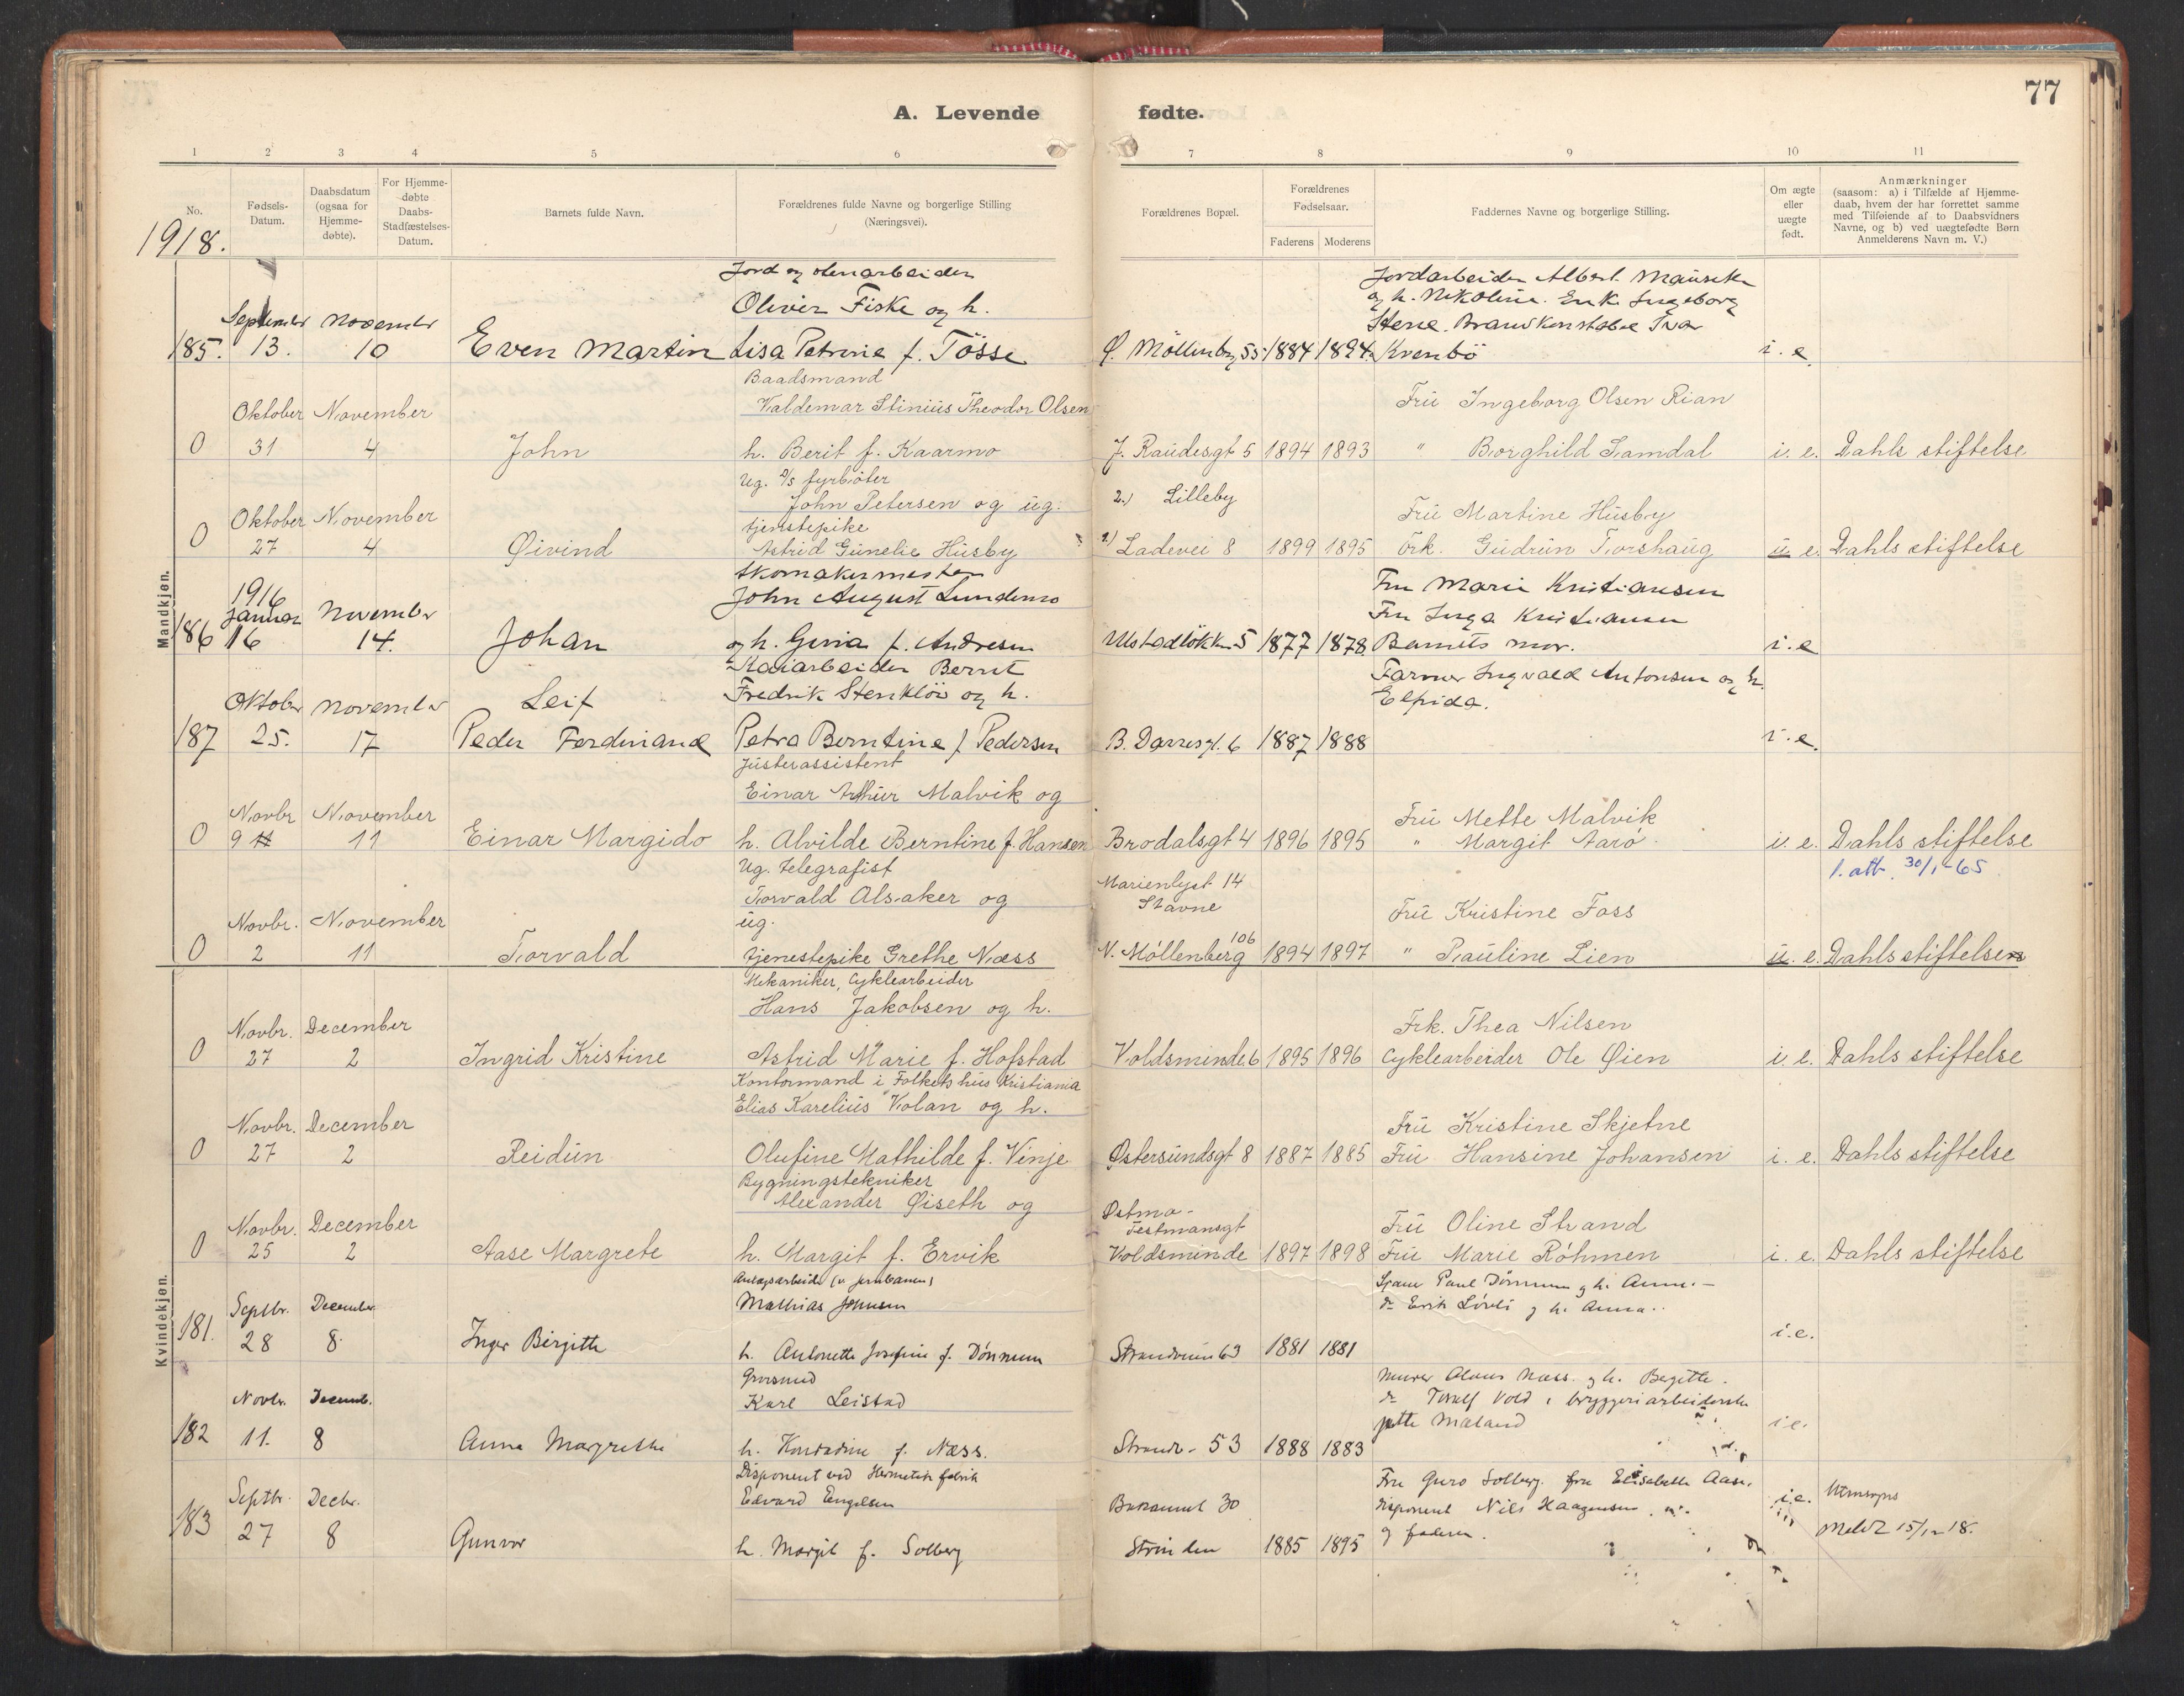 77
A. Levende fødte.
1 2 3 4 5 6 7 8 9 10 11
No.
Fødsels-Datum.
Daabsdatum (ogsaa for Hjemme-døbte).
For Hjemme-døbte Daabs-Stadfæstelses-Datum.
Barnets fulde Navn.
Forældrenes fulde Navne og borgerlige Stilling (Næringsvei).
Forældrenes Bopæl.
Forældrenes Fødselsaar.
Faderens Moderens
Faddernes Navne og borgerlige Stilling.
Om ægte eller uægte født.
Anmærkninger
(saasom: a) i Tilfælde af Hjemme-
daab, hvem der har forrettet samme
med Tilføiende af to Daabsvidners
Navne, og b) ved uægtefødte Børn
Anmelderens Navn m. V.)
1918.
Mandkjøn.
Jord og stenarbeider
Oliver Fiske og h.
Jordarbeider Albert
og h. Nikoline. Enk. Ingeborg
Stene. Brandkonstabel Ivar
September November
185. 13. 10 Even Martin Lisa Petrine f. Tösse Ø. Möllenbg 55 1884 1894 Krenbö i. e.
Baadsmand
Oktober November Valdemar Stinius Theodor Olsen Frü Ingeborg Olsen Rian
0 31 4 John h. Berit f. Kaarmo J. Raudesgt 5 1894 1893 " Borghild Samdal i. e. Dahls stiftelse
Ug. D/S fyrbøter
Oktober November John Petersen og ug. 2.) Lilleby Frü Martine Hüsby
tjenstepike
0 27 4 Øivind Astrid Günelie Hüsby 1) Ladevei 8 1899 1895 Frk. Güdrün Torshaüg u e. Dahls stiftelse
Skomakermester
1916 John August Lundemo Fru Marie Kristiansen
Januar November Fru Inga Kristiansen
186 16 14. Johan og h. Gina f. Andresen Ulstadløkken 5 1877 1878 Barnets mor. i. e
Kaiarbeider Bernt
Farmer Ingvald Antonsen og h.
Oktober November Leif Fredrik Stenkløv og h. Elpida.
187 25. 17 Peder Ferdinand Petra Berntine f. Pedersen B. Darresgt. 6 1887 1888 i. e.
Justerassistent
Einar Arthur Malvik og
Novbr November Frü Mette Malvik
0 9 11 Einar Margido h. Alvilde Berntine f. Hansen Brodalsgt 4 1896 1895 " Margit Aarø i. e. Dahls stiftelse
1. att. 30/1-65
Ug. telegrafist
Torvald Alsaker og Marienlyst 14
Stavne
Novbr. November ug. Frü Kristine Foss
0 2 11 Torvald tjenestepike Grethe Næss N. Möllenberg 106 1894 1897 " Paüline Lien u. e. Dahls stiftelse
Kvindekjøn.
Mekaniker, Cyklearbeider
Hans Jakobsen og h.
Novbr. December Frk. Thea Nilsen
0 27 2 Ingrid Kristine Astrid Marie f. Hofstad Voldsminde 6 1895 1896 Cyklearbeider Ole Øien i. e. Dahls stiftelse
Kontormand i Folkets hüs Kristiania
Elias Karelius Volan og h.
Novbr. December Frü Kristine Skjetne
0 27 2 Reidün Olufine Mathilde f. Vinje Østersündsgt 8 1887 1885 Frü Hansine Johansen i. e. Dahls stiftelse
Bygningstekniker
Alexander Øiseth og Østmo-
Festmansgt
Novbr. December Frü Oline Strand
0 25 2 Aase Margrete h. Margit f. Ervik Voldsminde 1897 1898 Frü Marie Röhmen i. e. Dahls stiftelse
Anlægsarbeider (v. jernbanen)
Septbr. December Mathias Johnsen
Paul Dönnum og h. Anna.
Do Erik Løvli og h. Anna.
181. 28 8. Inger Birgitte h. Antonette Josefine f. Dønnum Strandveien 63 1881 1881 i. e.
Grovsmed
Novbr. Decemb. Karl Leistad
Murer Olaus Næss og h. Bergitte.
Do Toralf Vold
182 11. 8 Anna Margrethe h. Konradine f. Næss. Strandv. 53 1888 1883 Mæland i e.
Disponent ved Hermetik fabrik
Septbr. Decbr. Edvard Engelsen Bakaunet 30
Fru Guro Solberg. fru Elisabeth Aase.
Disponent Nils Haagensen
og faderen.
183 27 8 Gunvor h. Margit f. Solberg Strinden 1885 1895 i. e. Utensogns
Meldt 15/12 18.